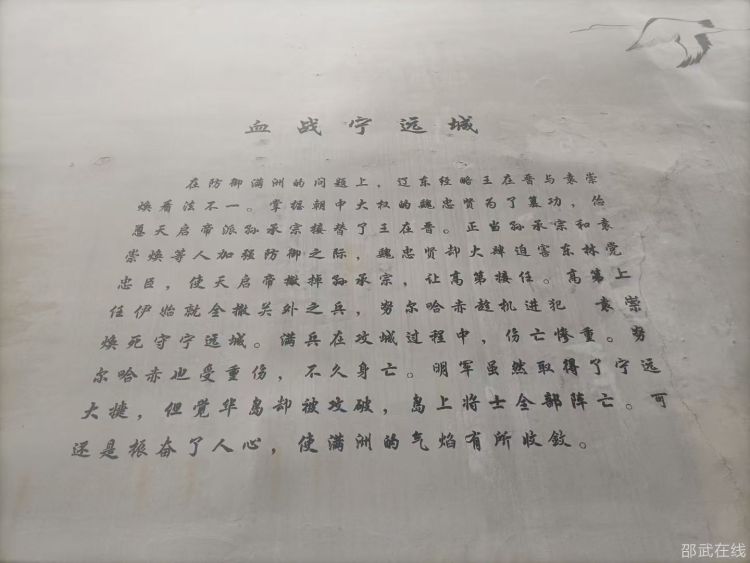 血战宁远城
在防御满洲的问题上，辽东经略王在晋与袁崇
焕看法不一。掌握朝中大权的魏忠贤为了冀功，怂
恿天启帝派孙承宗接替了王在晋。正当孙承宗和袁
崇焕等人加强防御之际，魏忠贤却大肆迫害东林党
忠臣，使天启帝撤掉孙承宗，让高第接任。高第上
任伊始就全撤关外之兵，努尔哈赤趁机进犯 袁崇
焕死守宁远城。满兵在攻城过程中，伤亡惨重。努
尔哈赤也受重伤，不久身亡。明军虽然取得了宁远
大捷，但觉华岛却被攻破，岛上将士全部阵亡。可
还是振奋了人心，使满洲的气焰有所收敛。
邵武在线